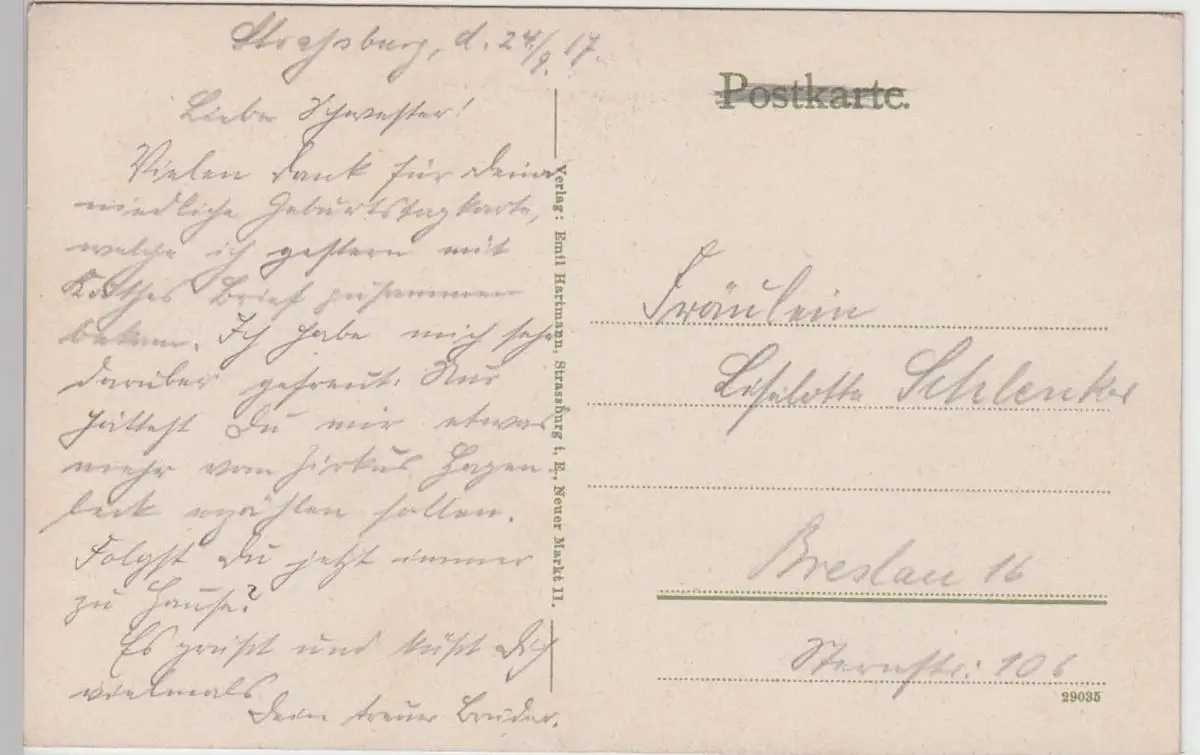 Strassburg, d. 24./9. 17.
Liebe Schwester!
Vielen Dank für Deine
niedliche Geburtstagkarte,
welche ich gestern mit
Käthes Brief zusammen
bekam. Ich habe mich sehr
darüber gefreut. Nur
hättest Du mir etwas
mehr vom Zirkus Hagen-
beck erzählen sollen.
Folgst Du jetzt immer
zu Hause?
Es grüßt und küßt Dich
vielmals
Dein treuer Bruder.
Verlag: Emil Hartmann, Strassburg i. E., Neuer Markt 11.
Postkarte.
Fräulein
Liselotte Schlenker
Breslau 16
Sternstr: 106
29035